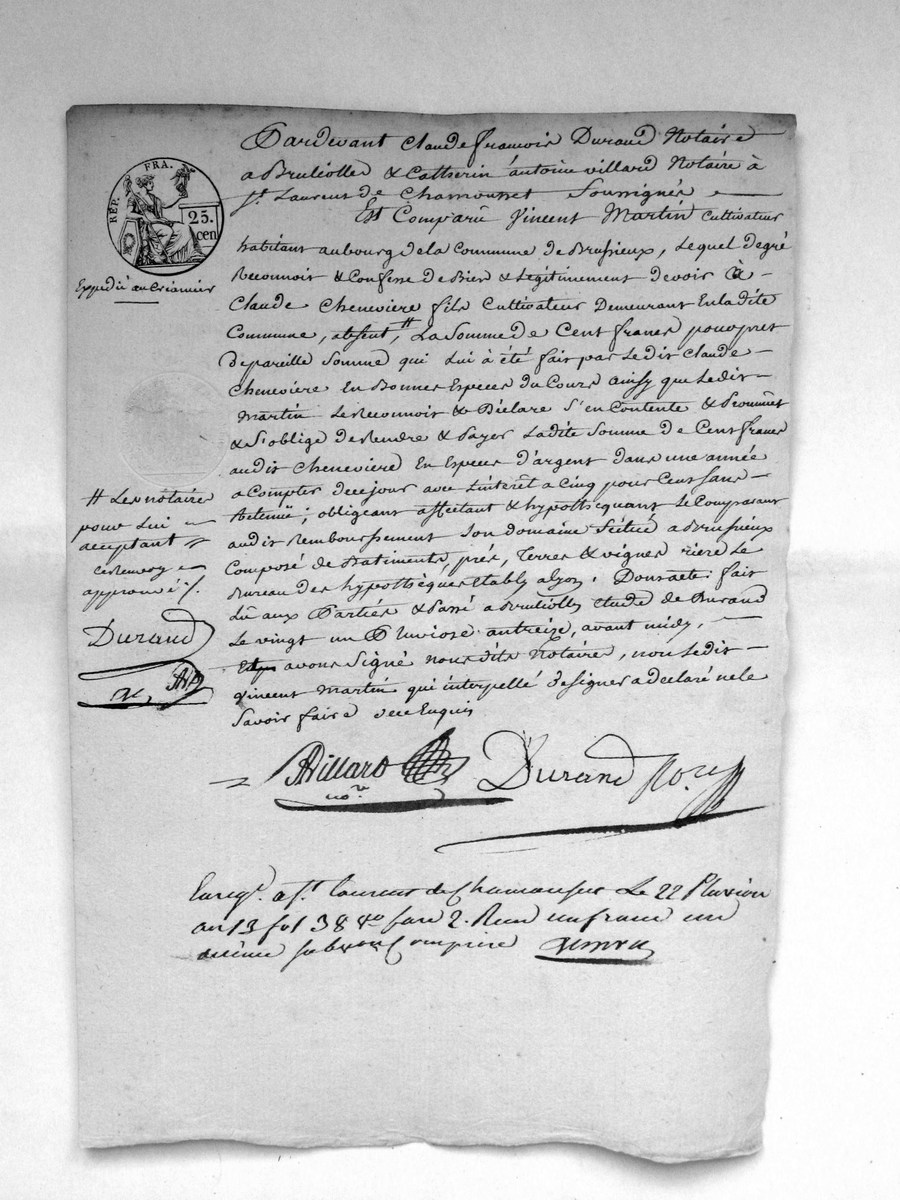 RÉP. FRA.
25.
cen
Expedié au Créancier
Pardevant Claude francois Durand Notaire
a Brullolles & Catherin antoine villard Notaire à
St. Laurent de Chamousset Soussignés
Est Comparû Vincent Martin Cultivateur
habitant au bourg de la Commune de Brussieux, Lequel de gré
Reconnoit & Confesse de Bien & Légitimement devoir à
Claude Cheneviere fils Cultivateur Demeurant En la dite
Commune, absent, # La Somme de Cent francs pour pret
de pareille Somme qui Lui à été fait par Ledit Claude
Cheneviere En Bonnes Especes du Cours ainsy que Ledit
Martin Le Reconnoit & Déclare S'en Contente & Promet
& S'oblige de Rendre & Payer Ladite Somme de Cent francs
audit Cheneviere En Especes d'argent dans une année
a Compter de ce jour avec Linteret a Cinq pour Cent Sans
Retenüe; obligeant affectant & hypothequant Le Comparant
audit Remboursement Son domaine Scitué a Brussieux
Composé de Batiments, prés, Terres & vignes riere Le
Bureau des hypothèques Etably a Lyon. Dont acte: fait
Lu aux Parties & Passé a Brullolles Etude de Durand
Le vingt un Pluviose an treize, avant midy,
Et avons Signé nous dits Notaires, non Ledit
Vincent Martin qui interpellé de Signer a declaré ne le
Savoir faire de ce Enquis
# Les notaires
pour Lui
acceptant
ce Renvoy
approuvé /.
Durand
AV
Villard
nore
Durand Nore
Enregt. a St. Laurent de Chamousset Le 22 Pluviose
an 13 fol 38 Vo Case 2. Recu un franc un
décime subvon Comprise